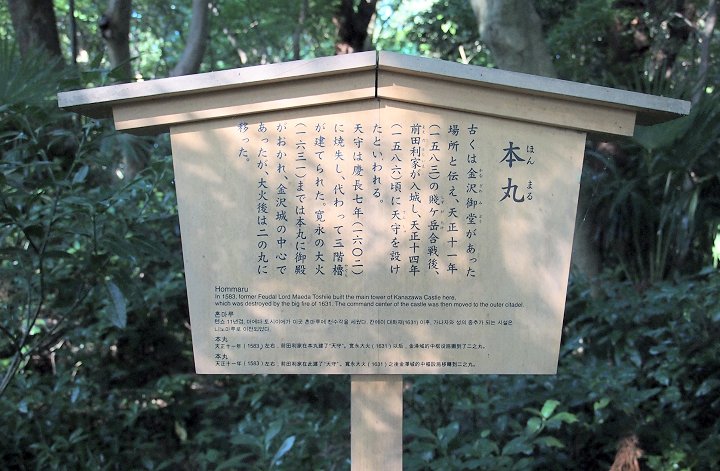 本丸
ほん まる
古くは金沢御堂があった
場所と伝え、天正十一年
（一五八三）の賤ケ岳合戦後、
前田利家が入城し、天正十四年
（一五八六）頃に天守を設け
たといわれる。
天守は慶長七年（一六〇二）
に焼失し、代わって三階櫓
が建てられた。寛永の大火
（一六三一）までは本丸に御殿
がおかれ、金沢城の中心で
あったが、大火後は二の丸に
移った。
Hommaru
In 1583, former Feudal Lord Maeda Toshiie built the main tower of Kanazawa Castle here,
which was destroyed by the big fire of 1631. The command center of the castle was then moved to the outer citadel.
혼마루
텐쇼 11년경, 마에다 토시이에가 이곳 혼마루에 천수각을 세웠다. 칸에이 대화재(1631) 이후, 가나자와 성의 중추가 되는 시설은
니노마루로 이전되었다.
本丸
天正十一年（1583）左右，前田利家在本丸建了"天守"。宽永大火（1631）以后，金泽城的中枢设施搬到了二之丸。
本丸
天正十一年（1583）左右，前田利家在此建了"天守"，寬永大火（1631）之後金澤城的中樞設施移轉到二之丸。